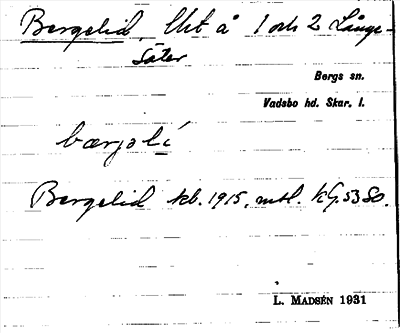 Bergelid, Lht å 1 och 2 Långe-
säter
Bergs sn.
Vadsbo hd. Skar. l.
bærjəlí
Bergelid kb. 1915, mtl. kG. 53 So.
L. MADSÉN 1931